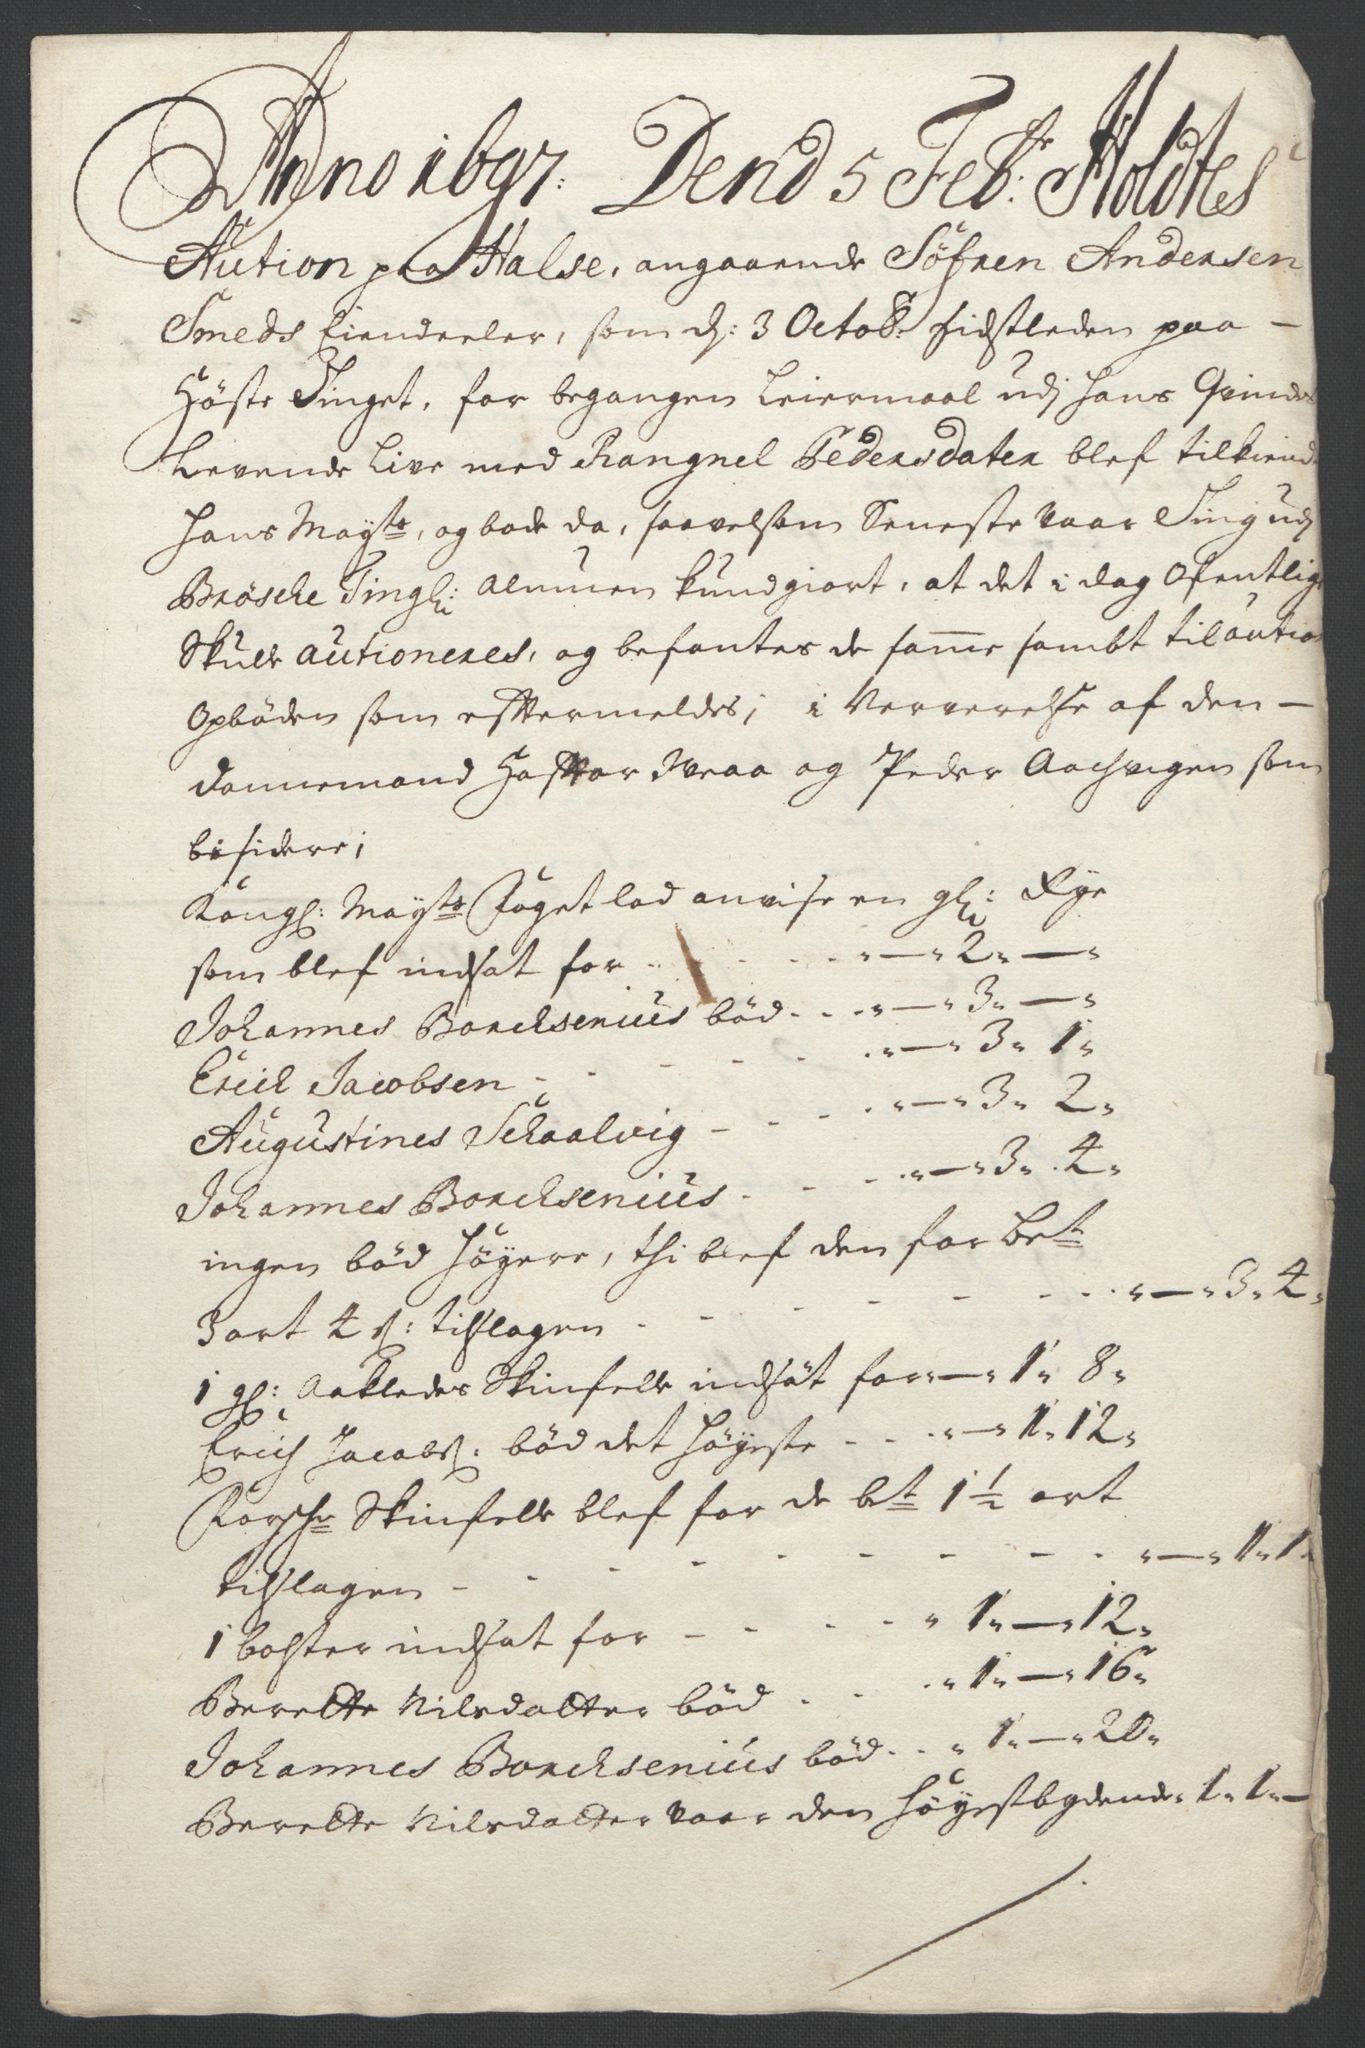 Anno 1697: Dend 5 Feb:r Holdtes
Aution paa Halse, angaaende Söfren Andersen
Smeds Eiendeeler, som d: 3 Octob: sidstleden paa -
Höste Tinget, for begangen Leiermaal udj hans Qvindes
Levende Live med Rangnel Pedersdater blef tilkiendt
hans Mayts, og bode da, saavelsom Seneste Vaar Ting udj
Brösche Tingl: almuen kundgiort, at det i dag Ofentlig
Skulle autioneres, og befantes de samme sambt til aution
Opböden som efftermeldes; i Ververelse af den -
dannemand Hafftor Weaa og Peder Aachvigen som
besidere;
Kongl: Mayts Foget lod anvise en gl: Rye
som blef indsat for - - - „ — „ 2 „ — „
Johannes Borchsenius böd - - „ — „ 3 „ — „
Erich Jacobsen - - - - - „ — „ 3 „ 1 „
Augustines Schaalvig - - - „ — „ 3 „ 2 „
Johannes Borchsenius - - - „ — „ 3 „ 4 „
ingen böd höyere, thi blef den for bete
3 ort 4 s: tilslagen - - - - - - „ — „ 3 „ 4 „
1 gl: Aakledes Skinfelle indsat for „ — „ 1 „ 8 „
Erich Jacobs: böd det höyeste - - „ — „ 1 „ 12 „
Forschr Skinfelle blef for de bete 1 ½ ort
tilslagen - - - - - - - - „ — „ 1 „ 1
1 bolster indsat for - - - - „ 1 „ — „ 12 „
Berette Nilsdatter böd - - „ 1 „ — „ 16 „
Johannes Borchsenius böd - - „ 1 „ — „ 20 „
Berette Nilsdatter vaar den höyestbydende „ 1 „ 1 „ —